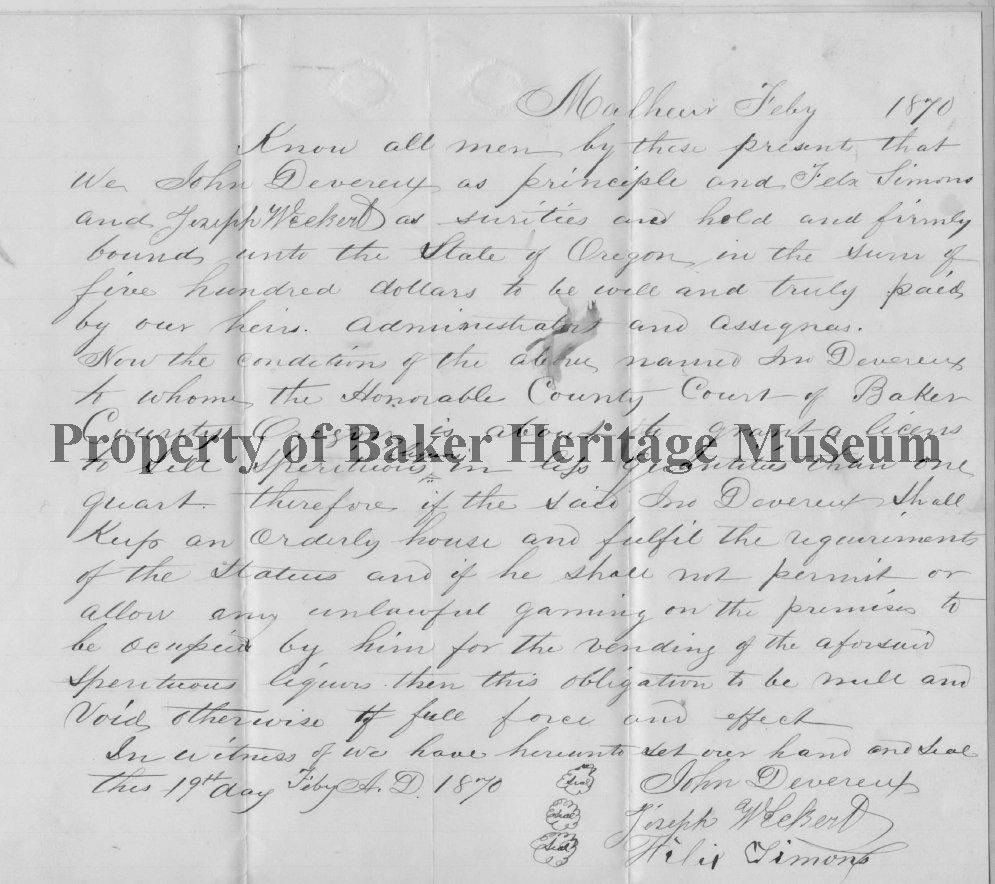 Malheur Feby 1870
Know all men by these present that
We John Devereux as principle and Felx Simons
and Joseph W Eckert as surities and held and firmly
bound unto the State of Oregon in the sum of
five hundred dollars to be well and truly paid
by our heirs. Administrator and Assignas.
Now the condition of the above named Jno Devereux
to whome the Honorable County Court of Baker
County Oregon is about to grant a licens
Property of Baker Heritage Museum
to sell Sperituous in less quantities than one
quart. therefore if the said Jno Devereux shall
Keep an Orderly house and fulfil the requiriments
of the Statues and if he shall not permit or
allow any unlawful gaming on the premises to
be ocupied by him for the vending of the aforsaid
Sperituous liquors then this obligation to be null and
Void otherwise of full force and effect
In witness of we have hereunto set our hand and seal
this 19th day Feby A.D. 1870 Seal John Devereux
Seal Joseph W Eckert
Seal Filix Simons